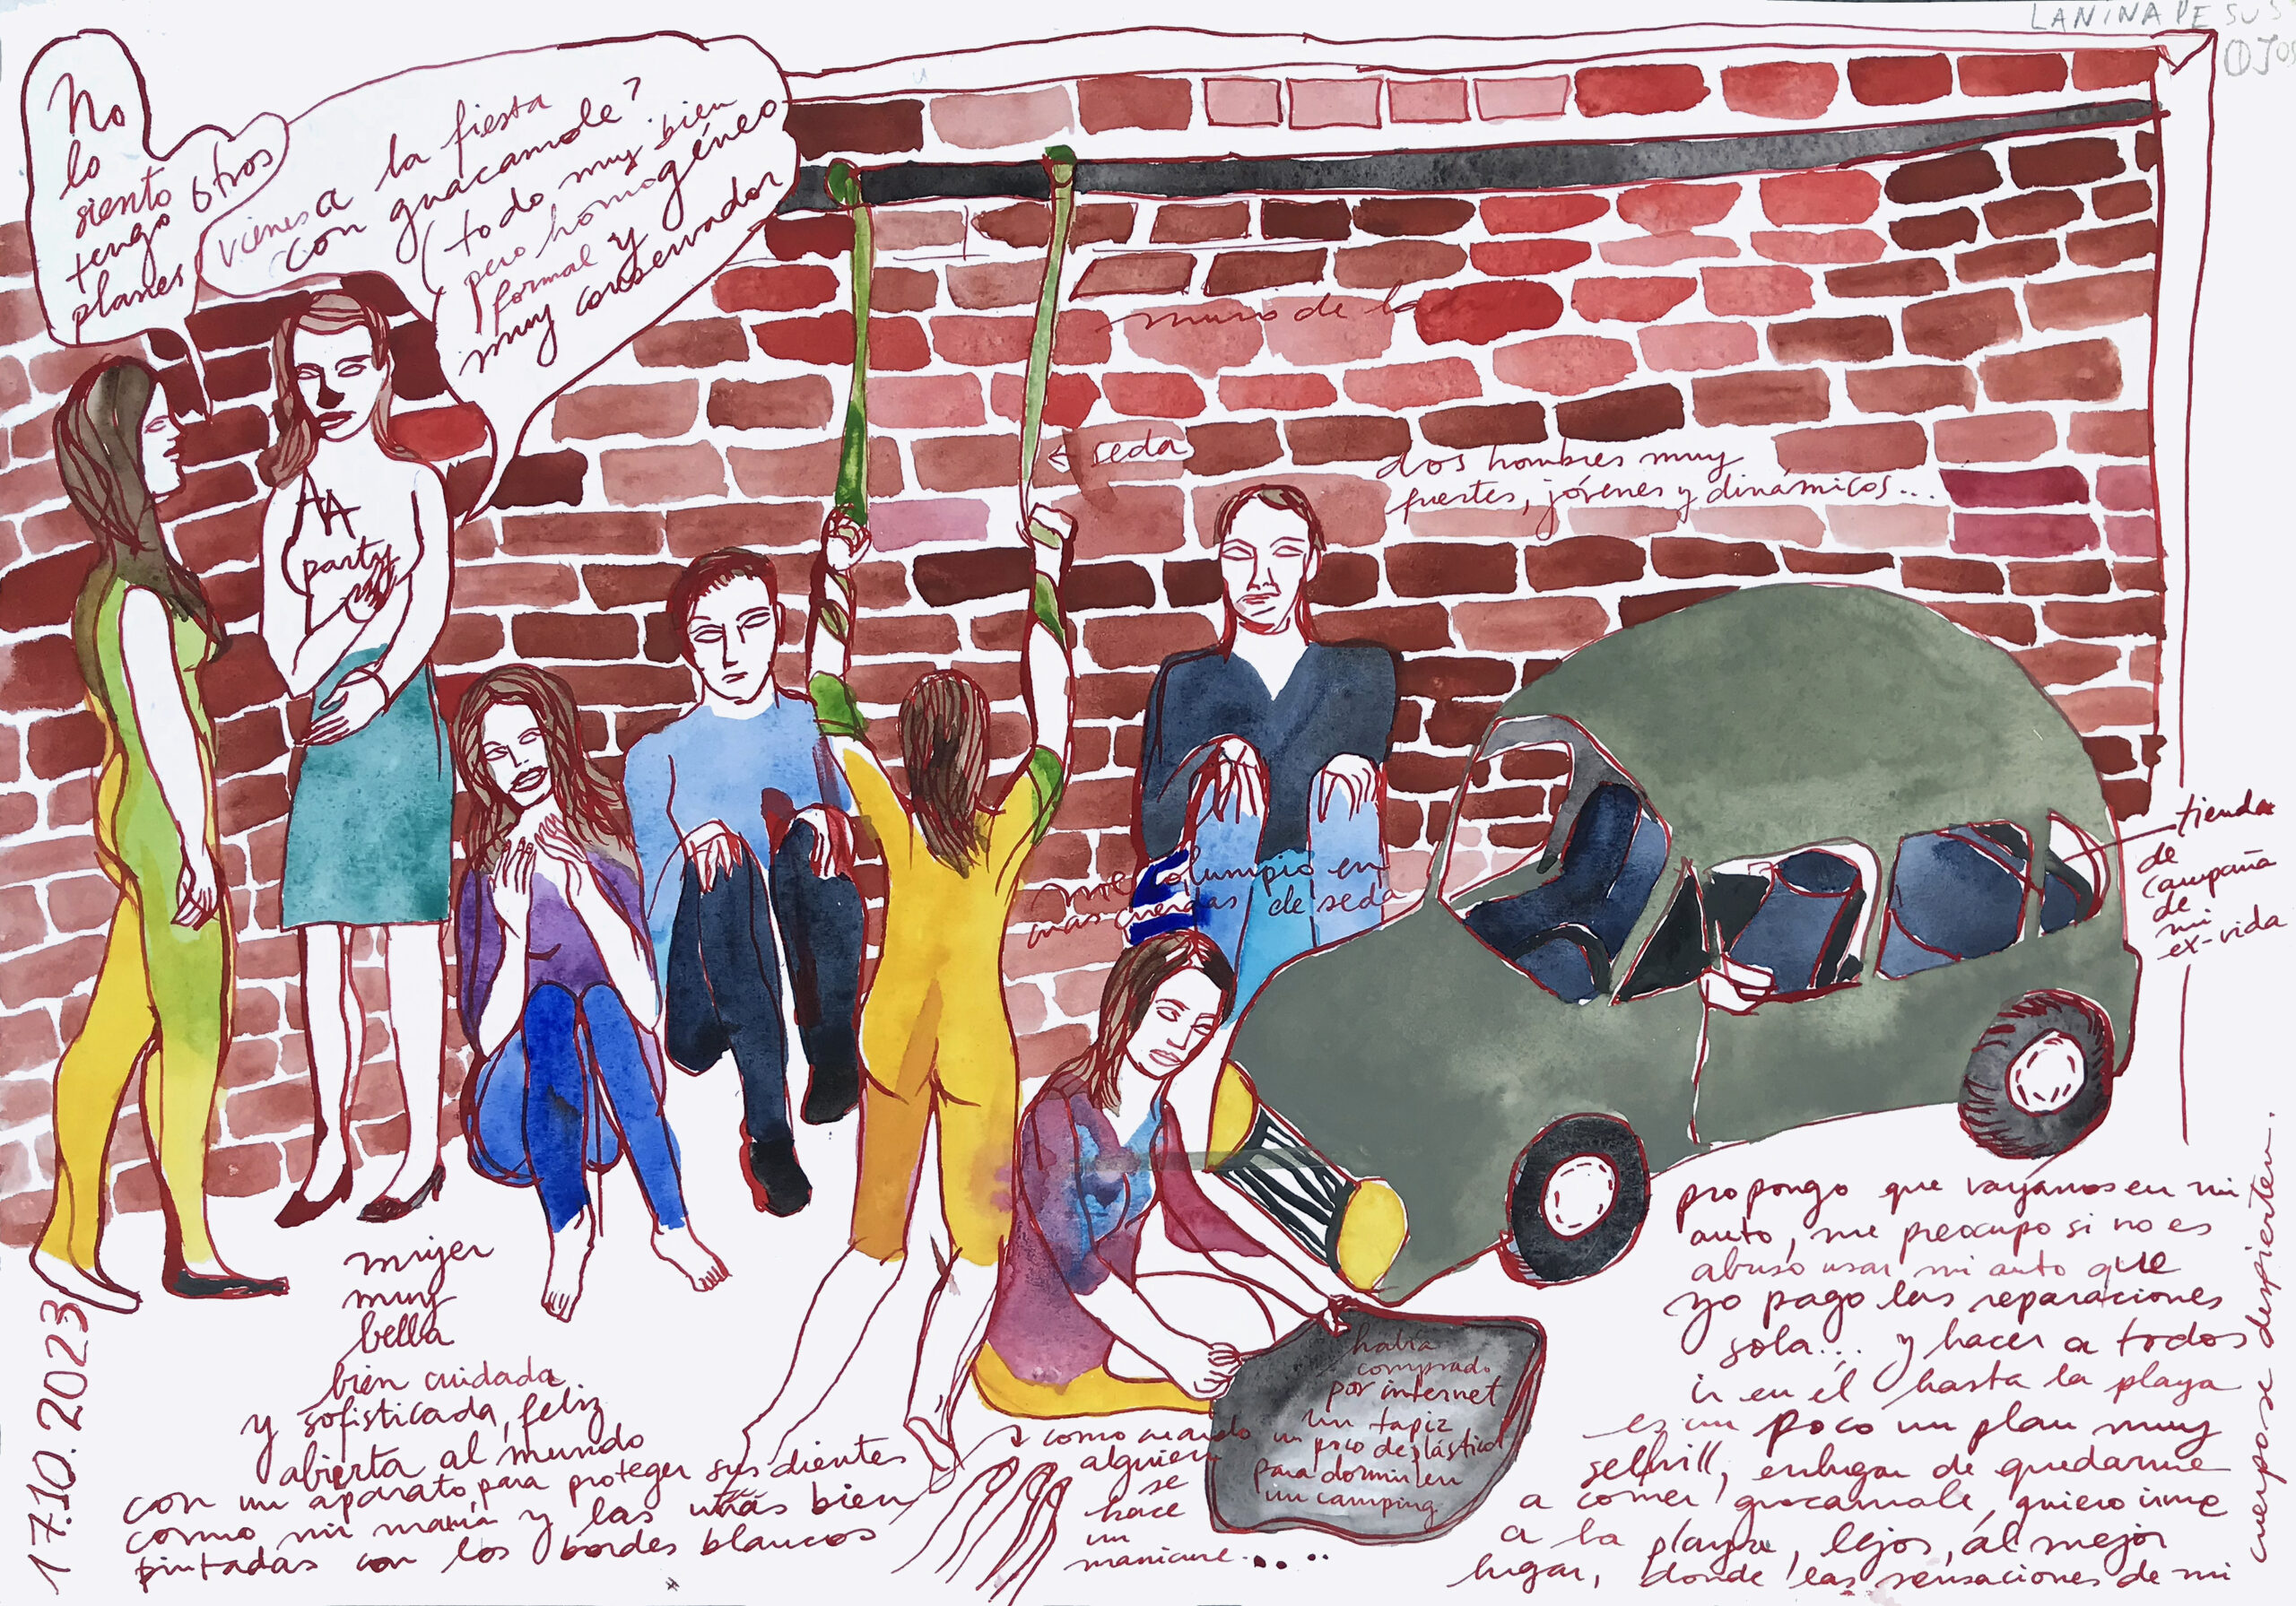 LANINA DE SUS
OJOS
No
lo
siento
tengo otros
planes
vienes a la fiesta
con guacamole?
(todo muy bien
pero homogéneo
formal y
muy conservador
AA
party
muro de la
← seda
dos hombres muy
fuertes, jóvenes y dinámicos...
me columpio en
unas cuerdas de seda
tienda
de
campaña
de
mi
ex-vida
mujer
muy
bella
bien cuidada
y sofisticada, feliz
abierta al mundo
con un aparato para proteger sus dientes
como mi mamá y las uñas bien
pintadas con los bordes blancos
como cuando
alguien
se
hace
un
manicure.....
había
comprado
por internet
un tapiz
un poco de plástico
para dormir en
un camping
propongo que vayamos en mi
auto, me preocupo si no es
abuso usar mi auto que
yo pago las reparaciones
sola... y hacer a todos
ir en él hasta la playa
es un poco un plan muy
enlugar de quedarme
a comer guacamole, quiero irme
a la playa, lejos, al mejor
lugar, donde las sensaciones de mi
cuerpo se despierten.
17.10.2023